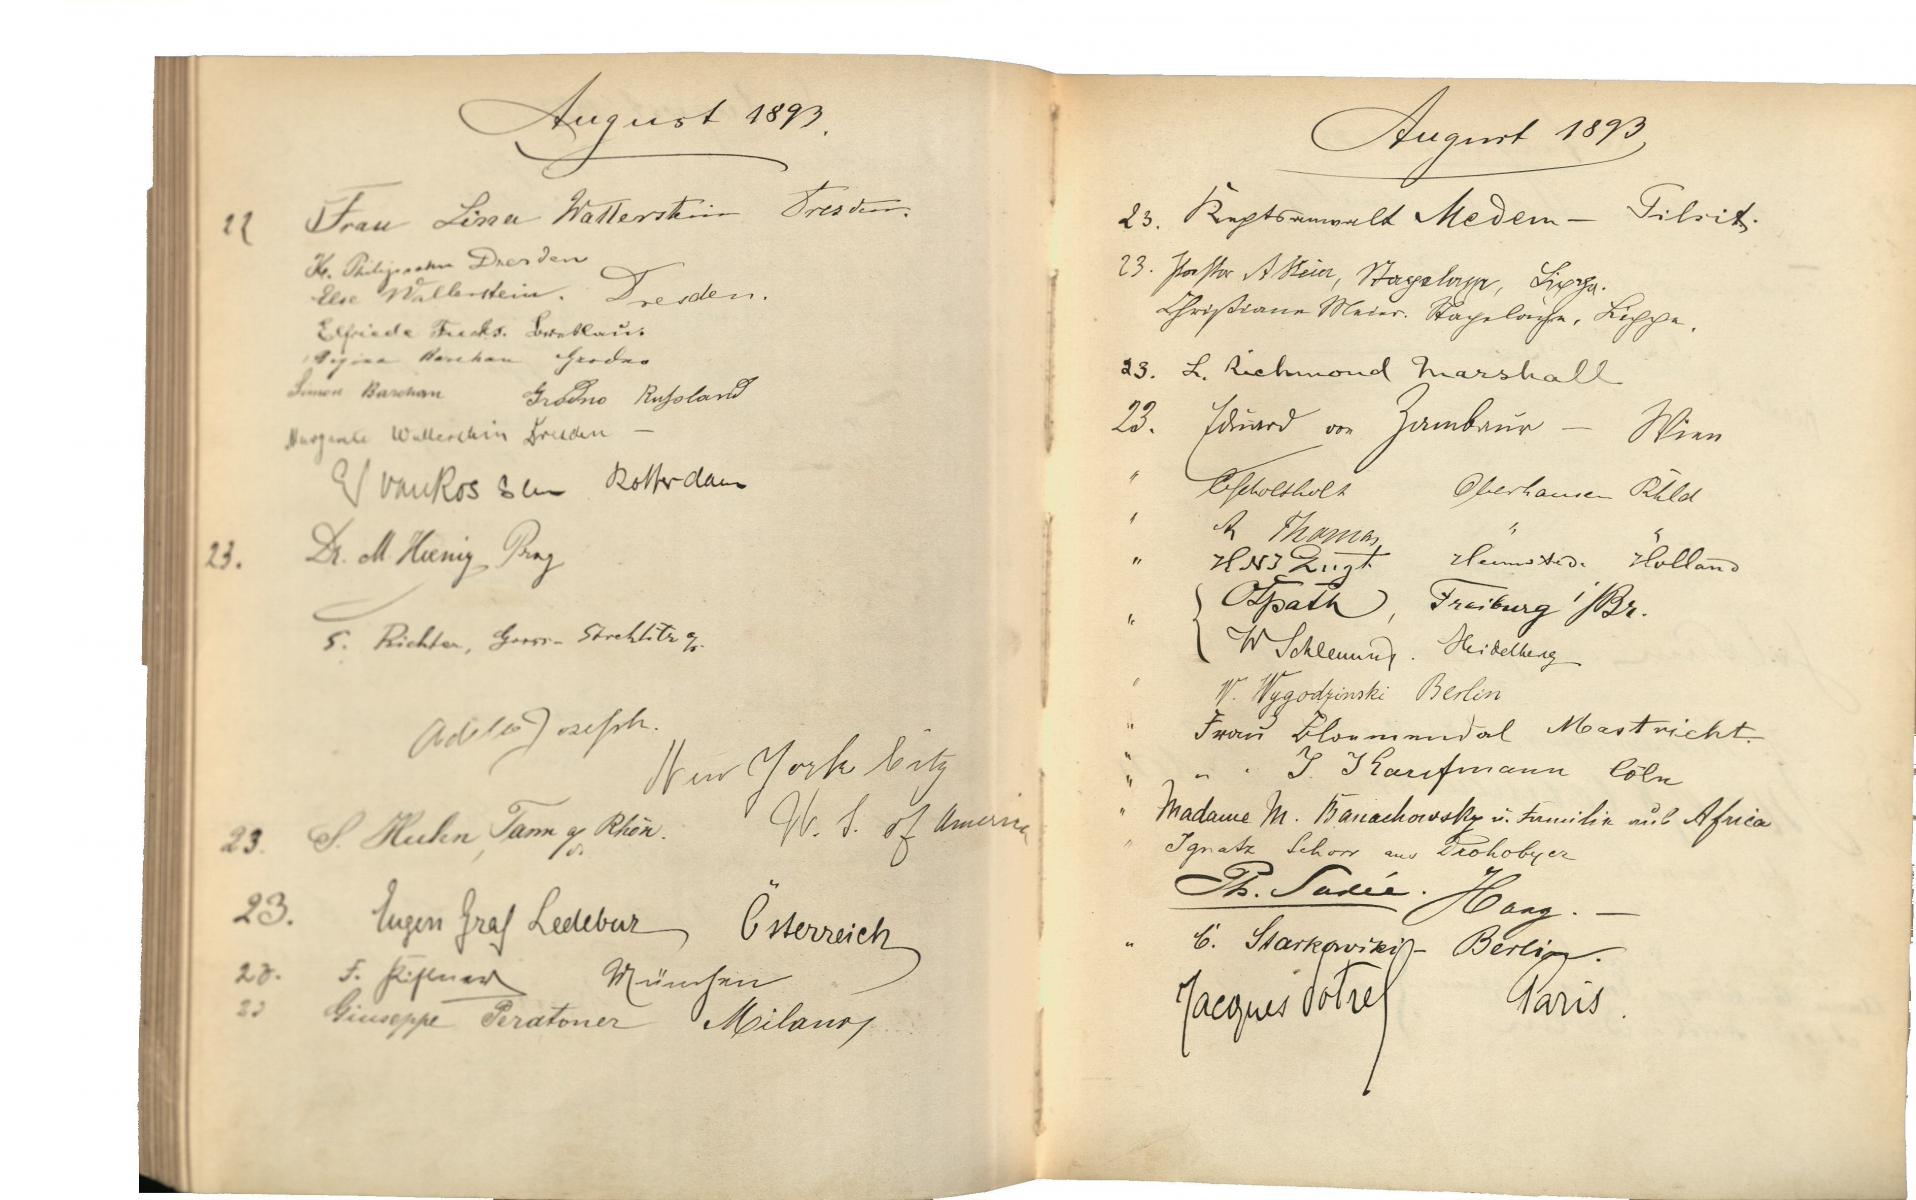 August 1893.
22 Frau Lina Wallerstein Dresden.
Dresden
Else Wallerstein. Dresden.
Elfriede Fuchs. Breslau.
Regina Barchan Grodno
Simon Barchan Grodno Russland
Margarete Wallerstein Dresden —
Rotterdam
23. Dr. M. Hoenig Prag
S. Richter, Gross-Strehlitz
Adele Joseph.
New York City
U. S. of America
23. S. Huhn, Tann a/ Rhön.
23. Eugen Graf Ledebur Österreich
23. F. München
23 Giuseppe Peratoner Milano
August 1893
23. Rechtsanwalt Medem — Tilsit.
23. Pastor A Meier, Stapelage, Lippe.
Christiane Meier. Stapelage, Lippe.
23. L. Richmond Marshall
23. Eduard von Zambaur — Wien
" Oberhausen Rhld
" A Thomas " "
" Holland
" O Spath, Freiburg i/Br.
W Schleuning. Heidelberg
" W. Wygodzinski Berlin
" Frau Bloemendal Mastricht.
" " " J. Kaufmann Cöln
" Madame M. Banachowsky u. Familie aus Africa
" Ignatz Schorr aus Drohobycz
Ph. Sadée. Haag. —
" C. Starkowski — Berlin.
Jacques Paris.